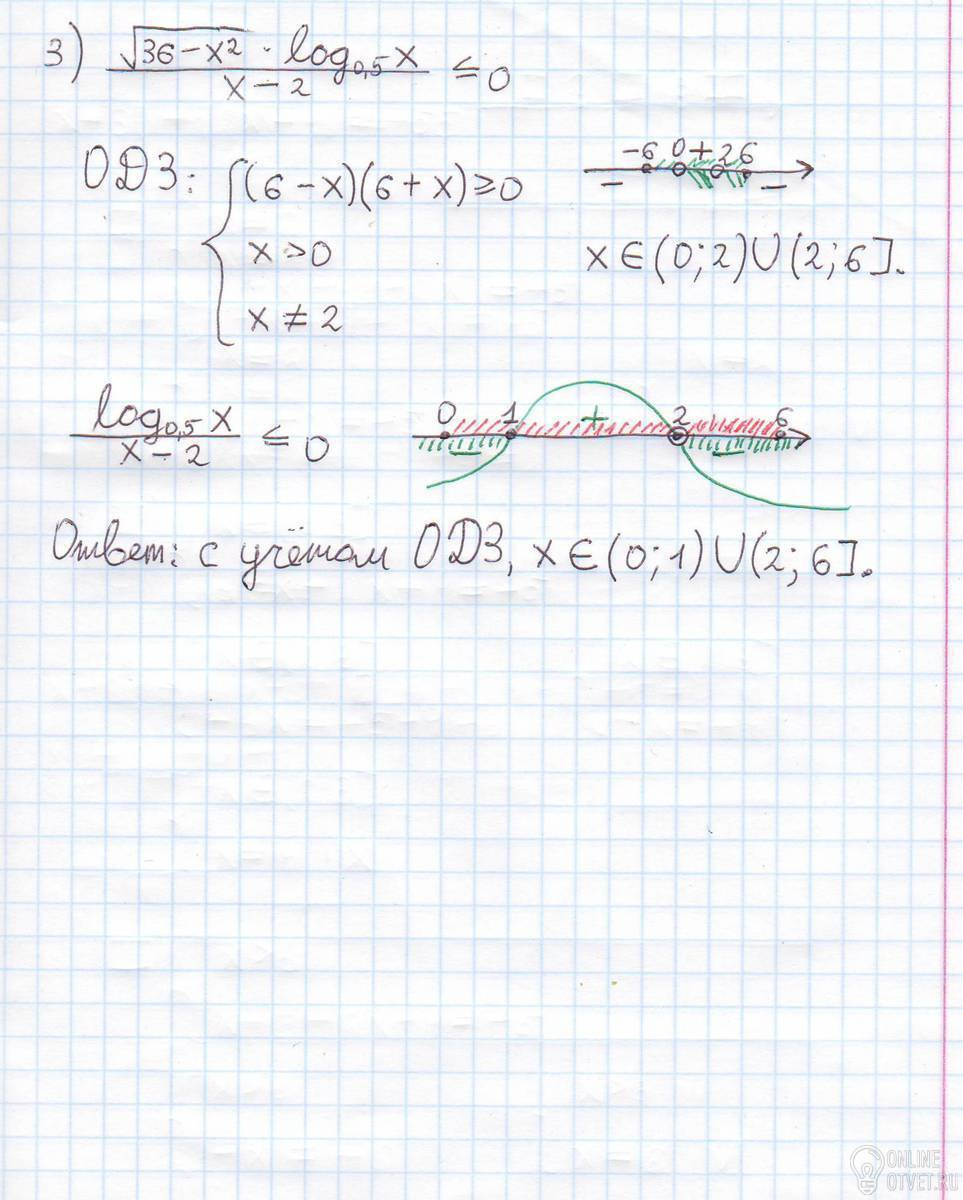 3) √(36-x²) · log₀,₅x / x-2 ≤ 0
ОДЗ: { (6-x)(6+x)≥0
x>0
x≠2
-6 0 + 2 6
- -
x∈(0;2)∪(2;6].
log₀,₅x / x-2 ≤ 0
0 1 + 2 6
- -
Ответ: с учётом ОДЗ, x∈(0;1)∪(2;6].
ONLINE
OTVET.RU